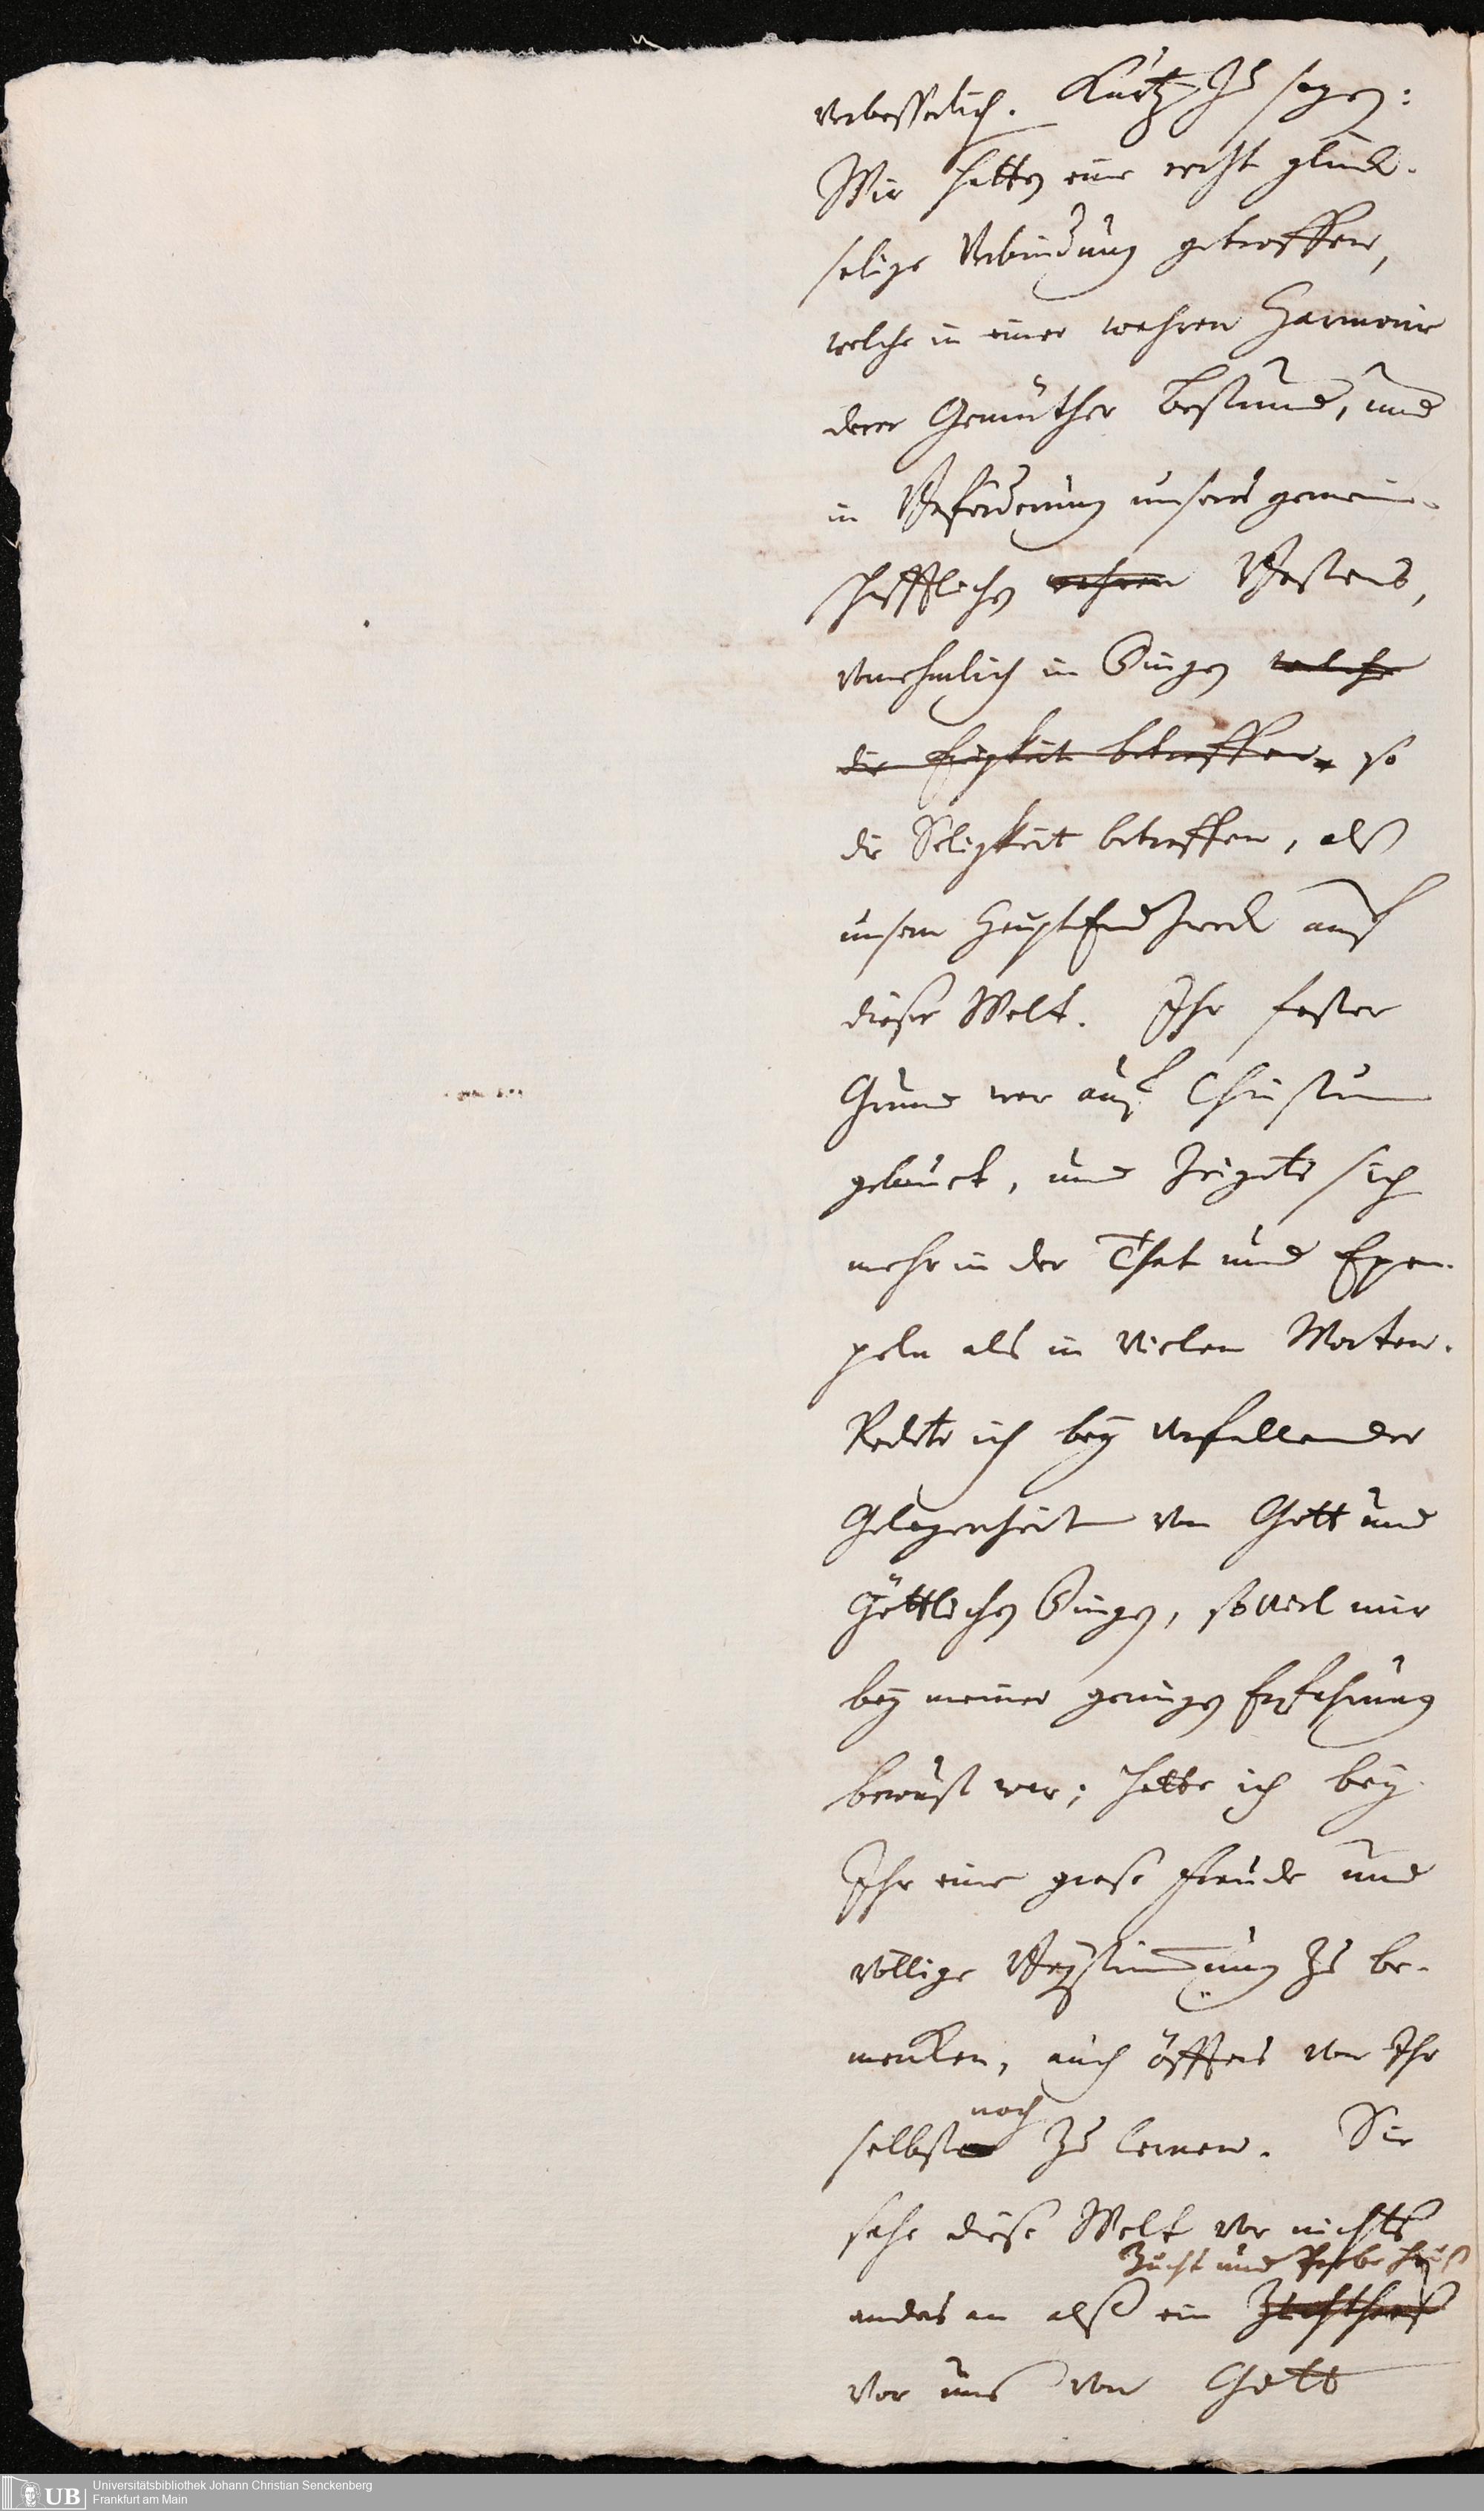 verbesserlich. Kurtz zu sagen:
Wir hatten eine recht glück-
selige Verbindung getroffen,
welche in einer wahren Harmonie
derer Gemüther bestund, und
in Beförderung unseres gemein-
schafftlichen wahren Bestens,
vornehmlich in Dingen welche
die Ewigkeit betreffen, so
die Seligkeit betreffen, alß
unsern HauptEndzweck auf
dieser Welt. Ihr fester
Grund war auf Christum
gebauet, und zeigete sich
mehr in der That und Exem-
peln als in vielen Worten.
Redete ich bey vorfallender
Gelegenheit von Gott und
Göttlichen Dingen, soviel mir
bey meiner geringen Erfahrung
bewust war; hatte ich bey
Ihr eine große Freude und
völlige Beystimmung zu be-
mercken, auch öffters von Ihr
noch
selbsten zu lernen. Sie
sahe diese Welt vor nichts
Zucht und Probe hauß
anders an alß ein Zuchthauß
vor uns von Gott
Universitätsbibliothek Johann Christian Senckenberg
Frankfurt am Main
UB